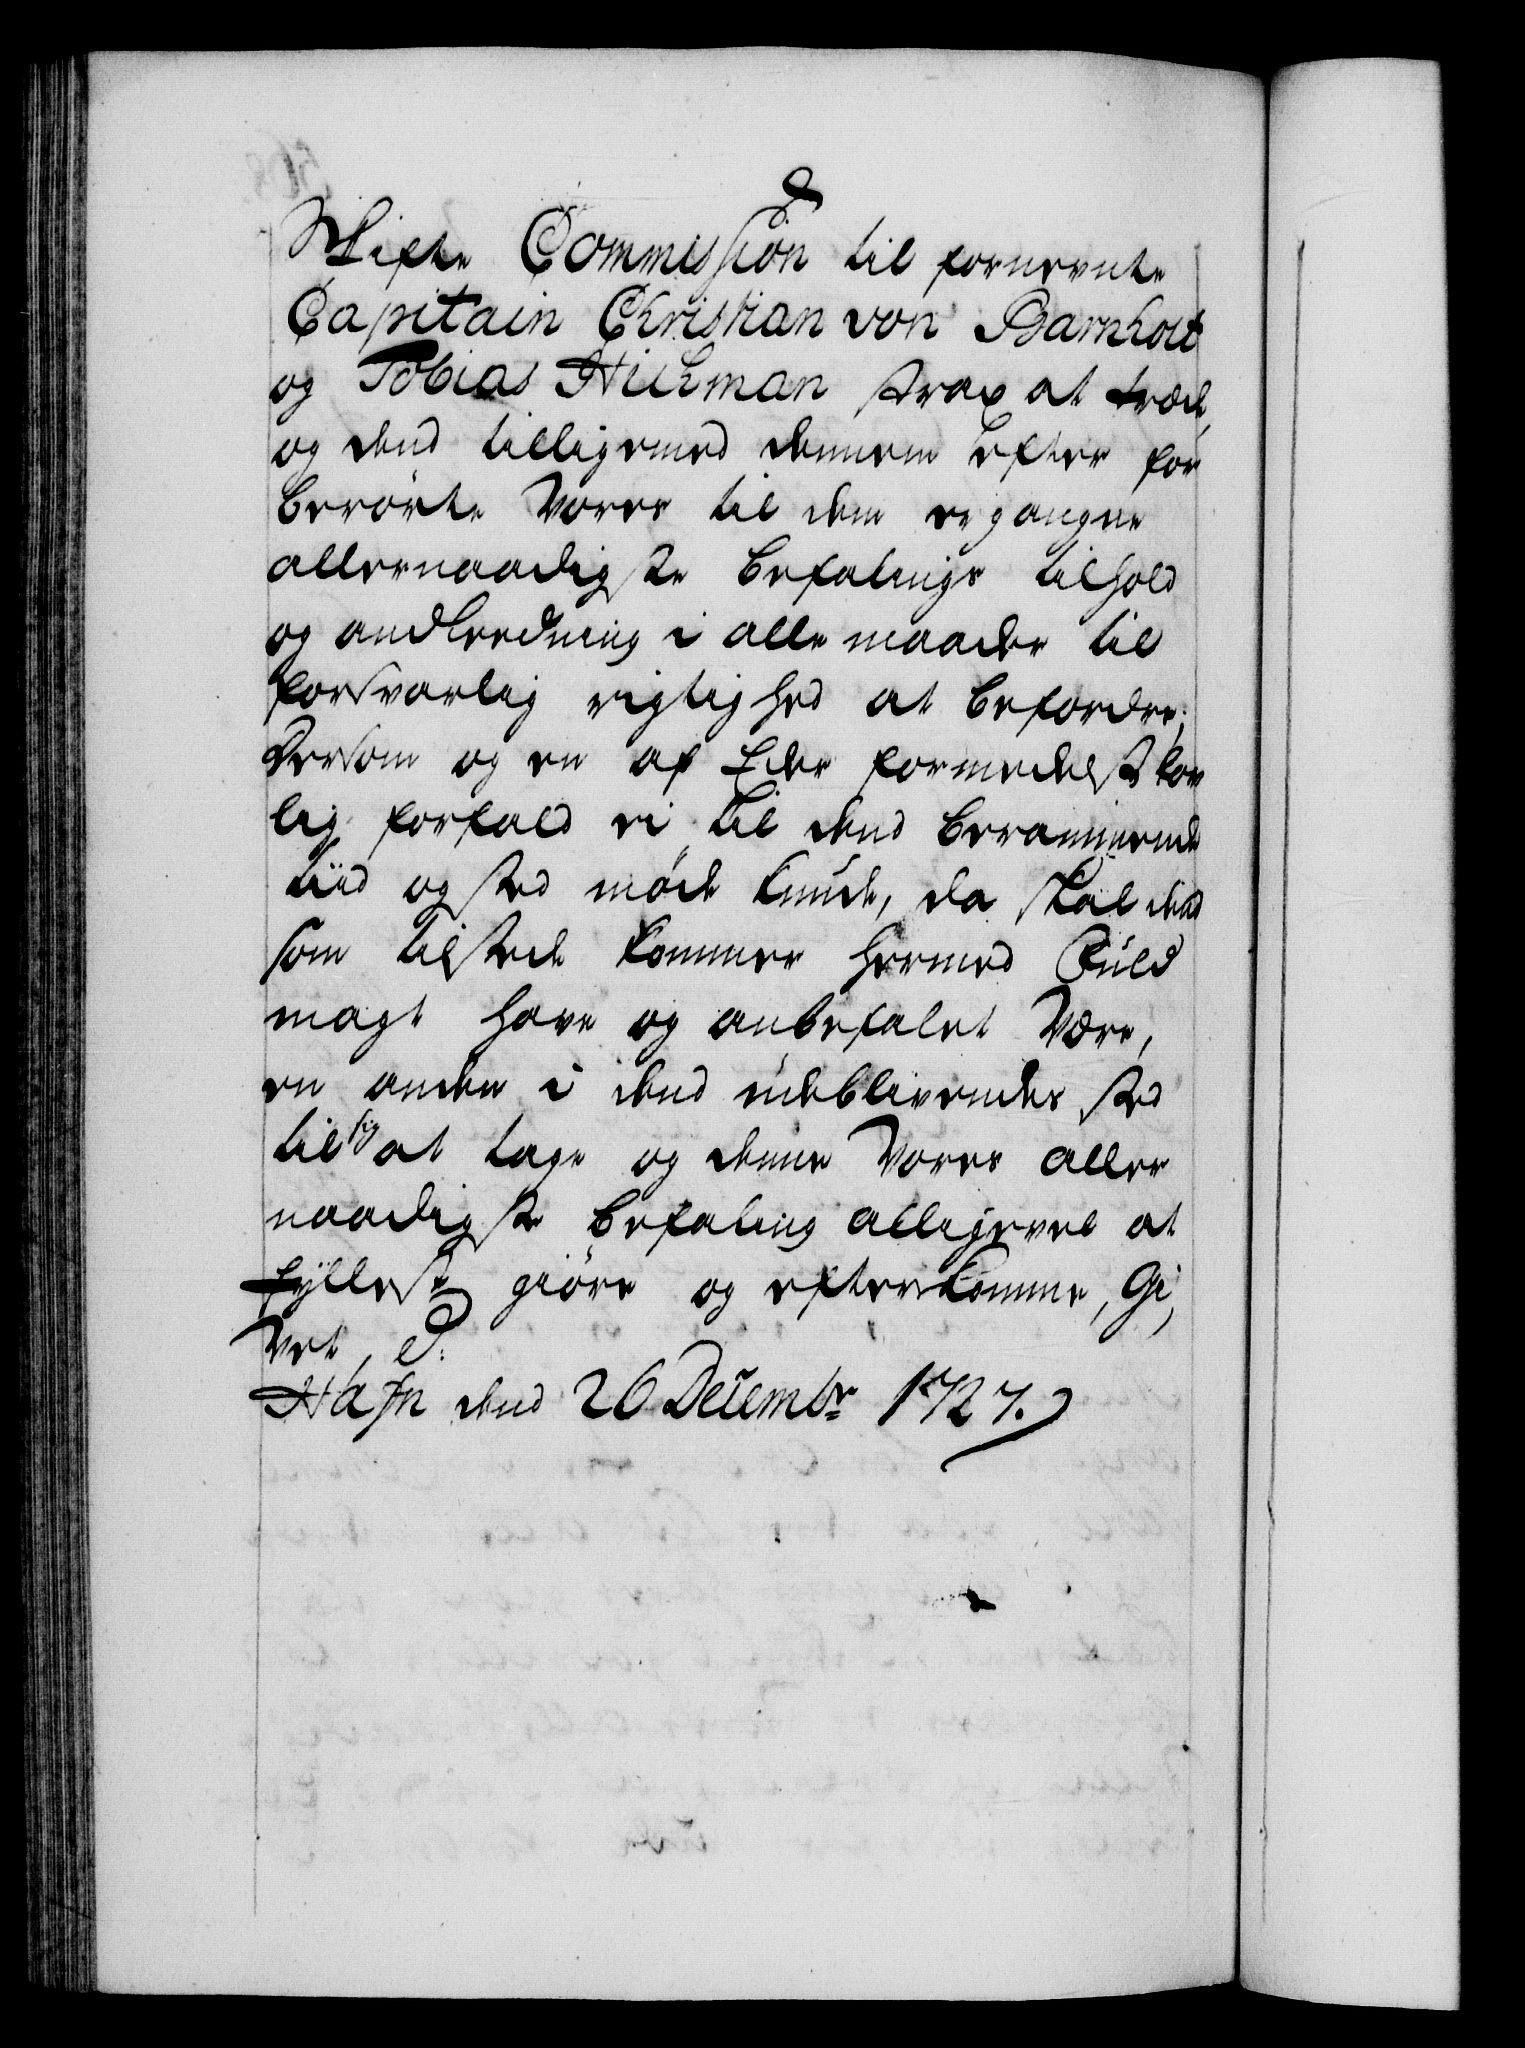 Viste Commission til fornevnte
Capitain Christian von Barnholt
og Tobias Hickman strax at træde,
og dend tilligemed dennem efter for
berørte Vores til dem ergangne
allernaadigste befalings tilhold
og andleedning i alle maader til
forsvarlig rigtighed at befordre;
Dersom og en af Eder formedelst lov
lig forfald ei til dend berammende
tiid og sted møde kunde, da skal dend
som tilstede kommer hermed Fuld
magt have og anbefalet være,
en anden i dend udeblivendes sted
til sig at tage og denne Vores aller
naadigste befaling alligevel at
fyllest giøre og efterkomme, Gi,
vet,
Hafn dend 26 Decembr 1727.